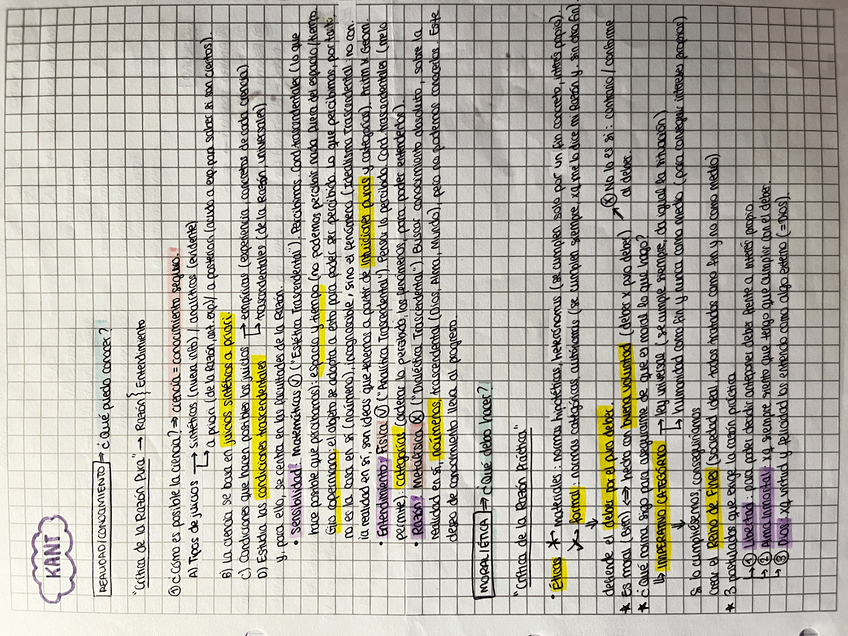 KANT
REALIDAD/CONOCIMIENTO → ¿Qué puedo conocer?
"Crítica de la Razón Pura" → Razón { Entendimiento
① ¿Cómo es posible la ciencia? → ciencia = conocimiento seguro.
A) Tipos de juicios → sintéticos (nueva info) / analíticos (evidente)
↳ a priori (de la Razón, ant. exp) / a posteriori (acudo a exp para saber si son ciertos).
B) La ciencia se basa en juicios sintéticos a priori.
C) Condiciones que hacen posibles los juicios → empíricas (experiencia, concretas de cada ciencia)
↳ trascendentales (de la Razón, universales)
D) Estudia las condiciones trascendentales
y, para ello, se centra en las facultades de la Razón.
• Sensibilidad: Matemáticas ✓ ("Estética Trascendental") Percibimos. Cond. trascendentales (lo que
hace posible que percibamos): espacio y tiempo (no podemos percibir nada fuera del espacio/tiempo.
Giro copernicano: el objeto se adapta a esto para poder ser percibido. Lo que percibimos, por tanto,
no es la cosa en sí (noúmeno), incognoscible, sino el fenómeno (Idealismo Trascendental: no con.
la realidad en sí, son ideas que tenemos a partir de intuiciones puras y categorías). Aritm y Geom.
• Entendimiento: Física ✓ ("Analítica Trascendental"). Pensar lo percibido. Cond. trascendentales (me lo
permite): categorías (ordenar lo percibido, los fenómenos, para poder entenderlos).
• Razón: Metafísica ⓧ ("Dialéctica Trascendental") Buscar conocimiento absoluto, sobre la
realidad en sí, noúmenos, trascendental (Dios, Alma, Mundo), pero no podemos conocerlos. Este
deseo de conocimiento lleva al progreso.
MORAL/ÉTICA → ¿Qué debo hacer?
"Crítica de la Razón Práctica"
• Éticas → materiales: normas hipotéticas, heterónomas (se cumplen solo por un fin concreto, interés propio).
→ formal: normas categóricas, autónomas (se cumplen siempre, xq me lo dice mi Razón y, sin otro fin).
↓
defiende el deber por el puro deber.
★ Es moral (bien) ⟺ hecho con buena voluntad (deber x puro deber) ↗ ⓧ No lo es si: contrario / conforme
al deber.
★ ¿Qué norma sigo para asegurarme de que es moral lo que hago?
↳ IMPERATIVO CATEGÓRICO → ley universal (se cumple siempre, da igual la situación)
↳ humanidad como fin y nunca como medio (para conseguir intereses propios)
↓
Si lo cumpliésemos, conseguiríamos
crear el Reino de Fines (sociedad ideal, todos tratados como fin y no como medio)
★ 3 postulados que exige la razón práctica
→ ① Libertad: para poder decidir anteponer deber frente a interés propio.
→ ② Alma inmortal: xq siempre siento que tengo que cumplir con el deber.
→ ③ Dios: xq virtud y felicidad las entiendo como algo externo (=Dios).